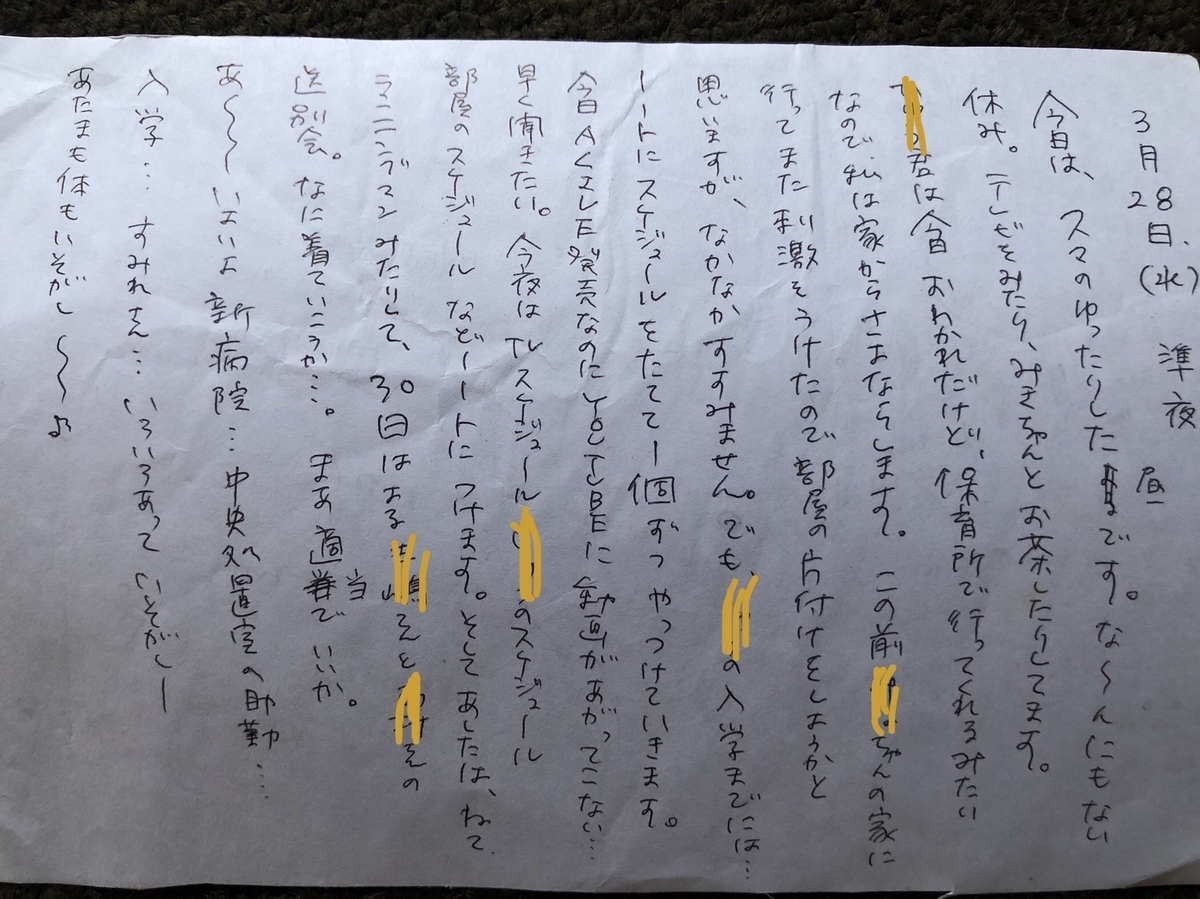 3月28日(水) 準夜 昼
今日は、ママのゆったりした日です。な〜んにもない
休み。テレビをみたり、みきちゃんとお茶したりしてます。
君は今日おわかれだけど、保育所で行ってくれるみたい
なので、私は家からさよならします。この前 ちゃんの家に
行ってまた刺激をうけたので部屋の片付けをしようかと
思いますが、なかなかすすみません。でも、 の入学までには…
ノートにスケジュールをたてて一個ずつやっつけていきます。
今日Aくま 発売なのにYOUTUBEに動画があがってこない…
早く聞きたい。今夜はTVスケジュール のスケジュール
部屋のスケジュールなどノートにつけます。そしてあしたは、ねて、
ランニングマンみたりして、30日はある さんと さんの
送別会。なに着ていこうか…。まあ適当でいいか。
あ〜〜いよいよ新病院…中央処置室の助勤…
入学… すみれさん… いろいろあっていそがしー
あたまも体もいそがし〜〜♪